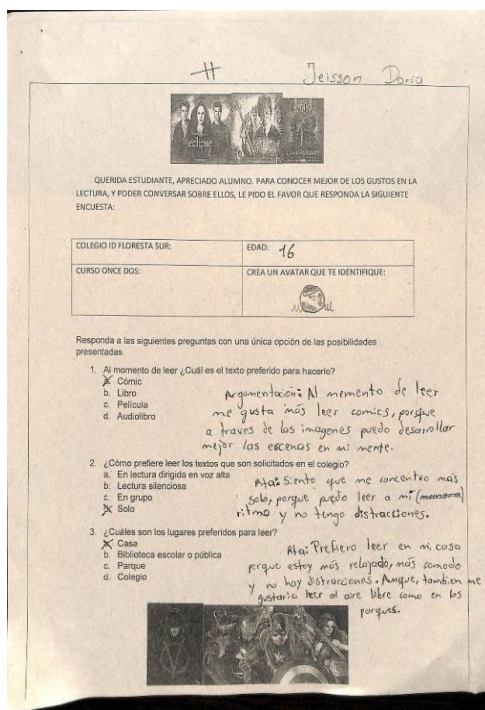 Jeisson Doria
eclipse
QUERIDA ESTUDIANTE, APRECIADO ALUMNO. PARA CONOCER MEJOR DE LOS GUSTOS EN LA
LECTURA, Y PODER CONVERSAR SOBRE ELLOS, LE PIDO EL FAVOR QUE RESPONDA LA SIGUIENTE
ENCUESTA:
COLEGIO ID FLORESTA SUR:
EDAD: 16
CURSO ONCE DOS:
CREA UN AVATAR QUE TE IDENTIFIQUE:
Responda a las siguientes preguntas con una única opción de las posibilidades
presentadas.
1. Al momento de leer ¿Cuál es el texto preferido para hacerlo?
a. Cómic
b. Libro
c. Película
d. Audiolibro
Argumentación: Al momento de leer
me gusta más leer comics, porque
a traves de las imagenes puedo desarrollar
mejor las escenas en mi mente.
2. ¿Cómo prefiere leer los textos que son solicitados en el colegio?
a. En lectura dirigida en voz alta
b. Lectura silenciosa
c. En grupo
d. Solo
Rta: Siento que me concentro más
solo, porque puedo leer a mi (manera)
ritmo y no tengo distracciones.
3. ¿Cuáles son los lugares preferidos para leer?
a. Casa
b. Biblioteca escolar o pública
c. Parque
d. Colegio
Rta: Prefiero leer en mi casa
porque estoy más relajado, más comodo
y no hay distracciones. Aunque, tambien me
gustaria leer al aire libre como en los
parques.